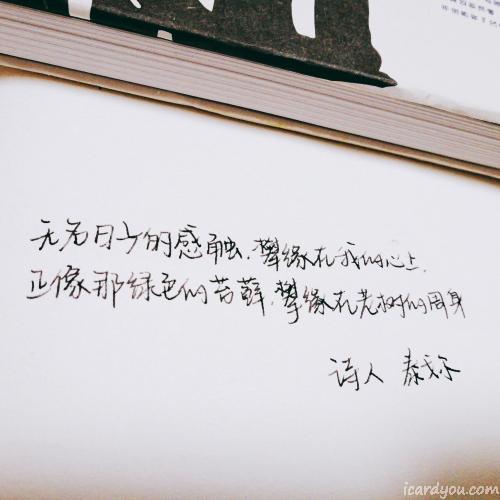 无名日子的感触,攀缘在我的心上,
正像那绿色的苔藓,攀缘在老树的周身
诗人 泰戈尔
icardyou.com